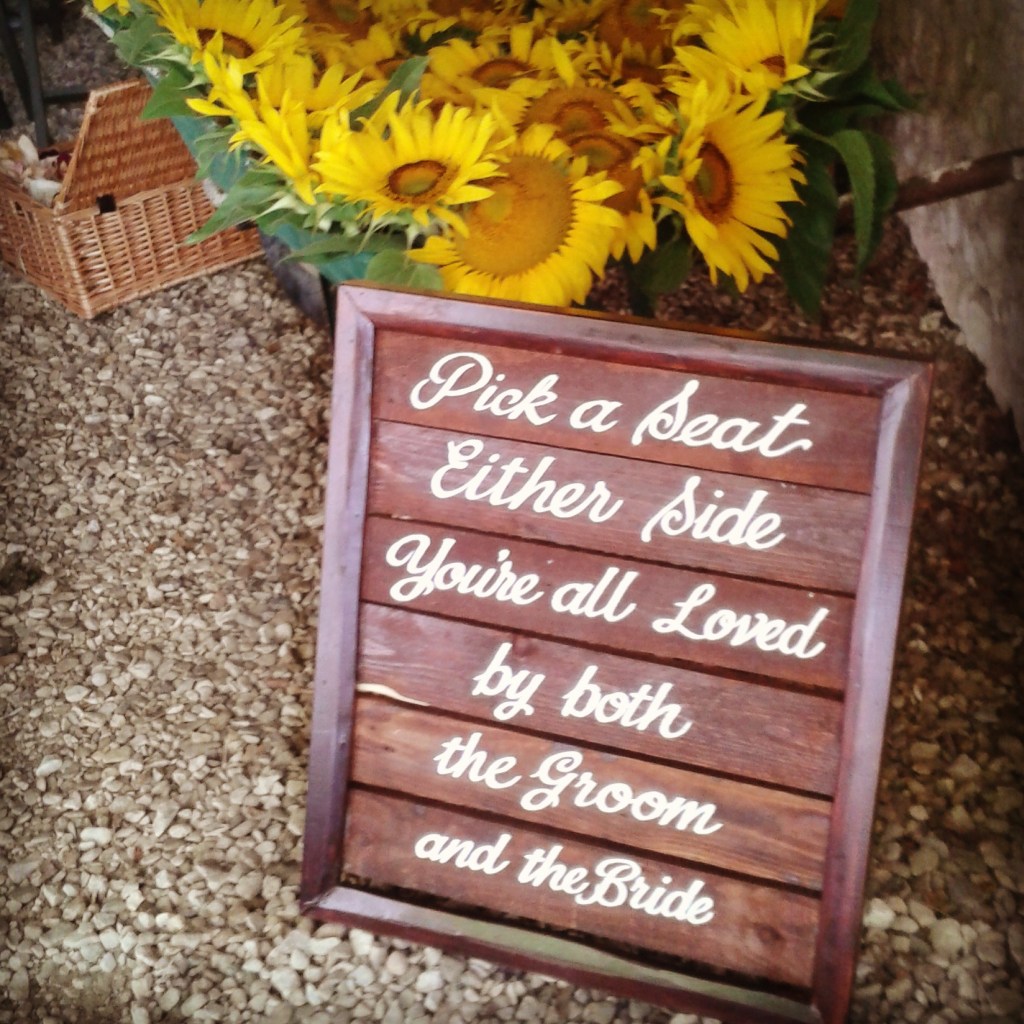 Pick a Seat
Either Side
You're all Loved
by both
the Groom
and the Bride